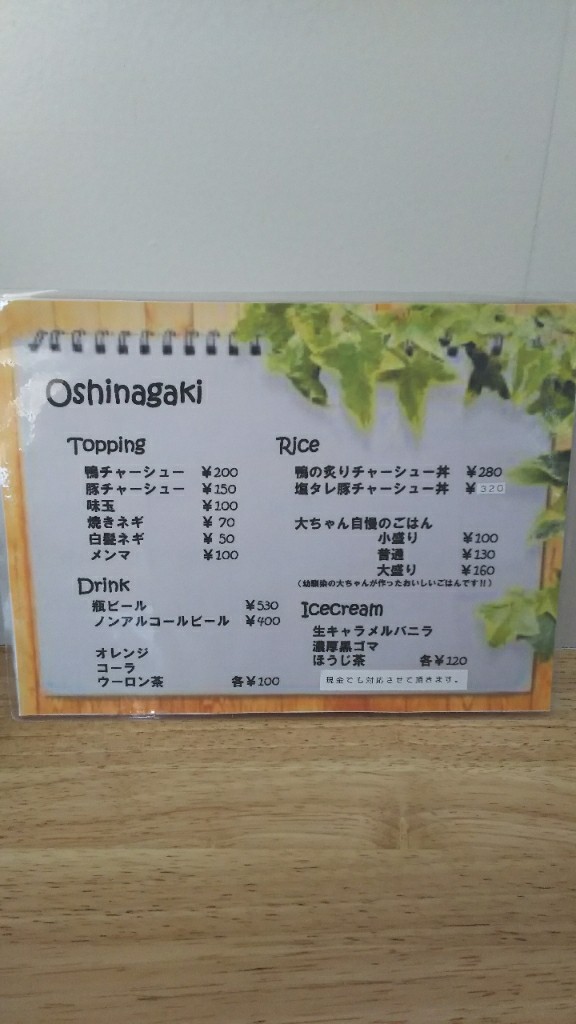 Oshinagaki
Topping
鴨チャーシュー ¥200
豚チャーシュー ¥150
味玉 ¥100
焼きネギ ¥ 70
白髪ネギ ¥ 50
メンマ ¥100
Drink
瓶ビール ¥530
ノンアルコールビール ¥400
オレンジ
コーラ
ウーロン茶 各¥100
Rice
鴨の炙りチャーシュー丼 ¥280
塩タレ豚チャーシュー丼 ¥320
大ちゃん自慢のごはん
小盛り ¥100
普通 ¥130
大盛り ¥160
(幼馴染の大ちゃんが作ったおいしいごはんです!!)
Icecream
生キャラメルバニラ
濃厚黒ゴマ
ほうじ茶 各¥120
現金でも対応させて頂きます。